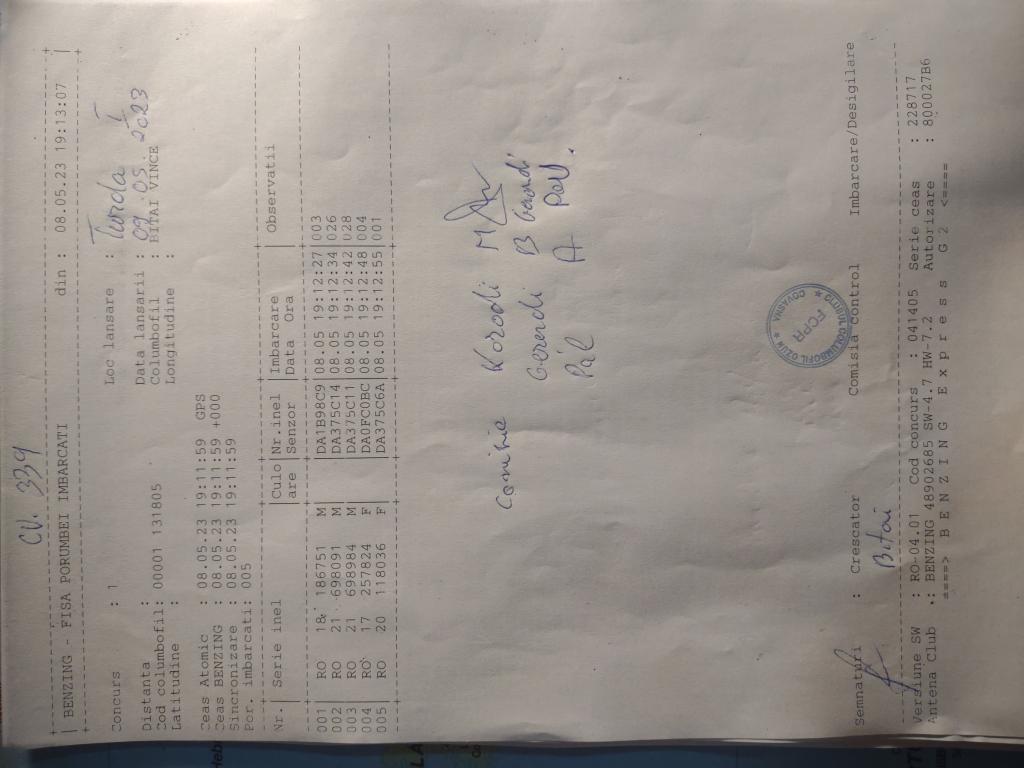 CV. 339
BENZING - FISA PORUMBEI IMBARCATI din : 08.05.23 19:13:07
Concurs : 1 Loc lansare : Turda I
Distanta : Data lansarii : 09.05.2023
Cod columbofil: 00001 131805 Columbofil : BITAI VINCE
Latitudine : Longitudine :
Ceas Atomic : 08.05.23 19:11:59 GPS
Ceas BENZING : 08.05.23 19:11:59 +000
Sincronizare : 08.05.23 19:11:59
Por. imbarcati: 005
Nr.| Serie inel |Culo|Nr.inel |Imbarcare | Observatii
|are |Senzor |Data Ora |
001 RO 186751 M |DA1B98C9|08.05 19:12:27|003
002 RO 21 698091 M |DA375C14|08.05 19:12:34|026
003 RO 21 698984 M |DA375C11|08.05 19:12:42|028
004 RO 17 257824 F |DA0FC0BC|08.05 19:12:48|004
005 RO 20 118036 F |DA375C6A|08.05 19:12:55|001
Comisie Korodi M
Gerendi B
Pál A
FCPR
COVASNA
Semnaturi : Crescator Comisia control Imbarcare/Desigilare
Bitai
Versiune SW : RO-04.01 Cod concurs : 041405 Serie ceas : 228717
Antena Club .: BENZING 48902685 SW-4.7 HW-7.2 Autorizare : 800027B6
====> B E N Z I N G E x p r e s s G 2 <====